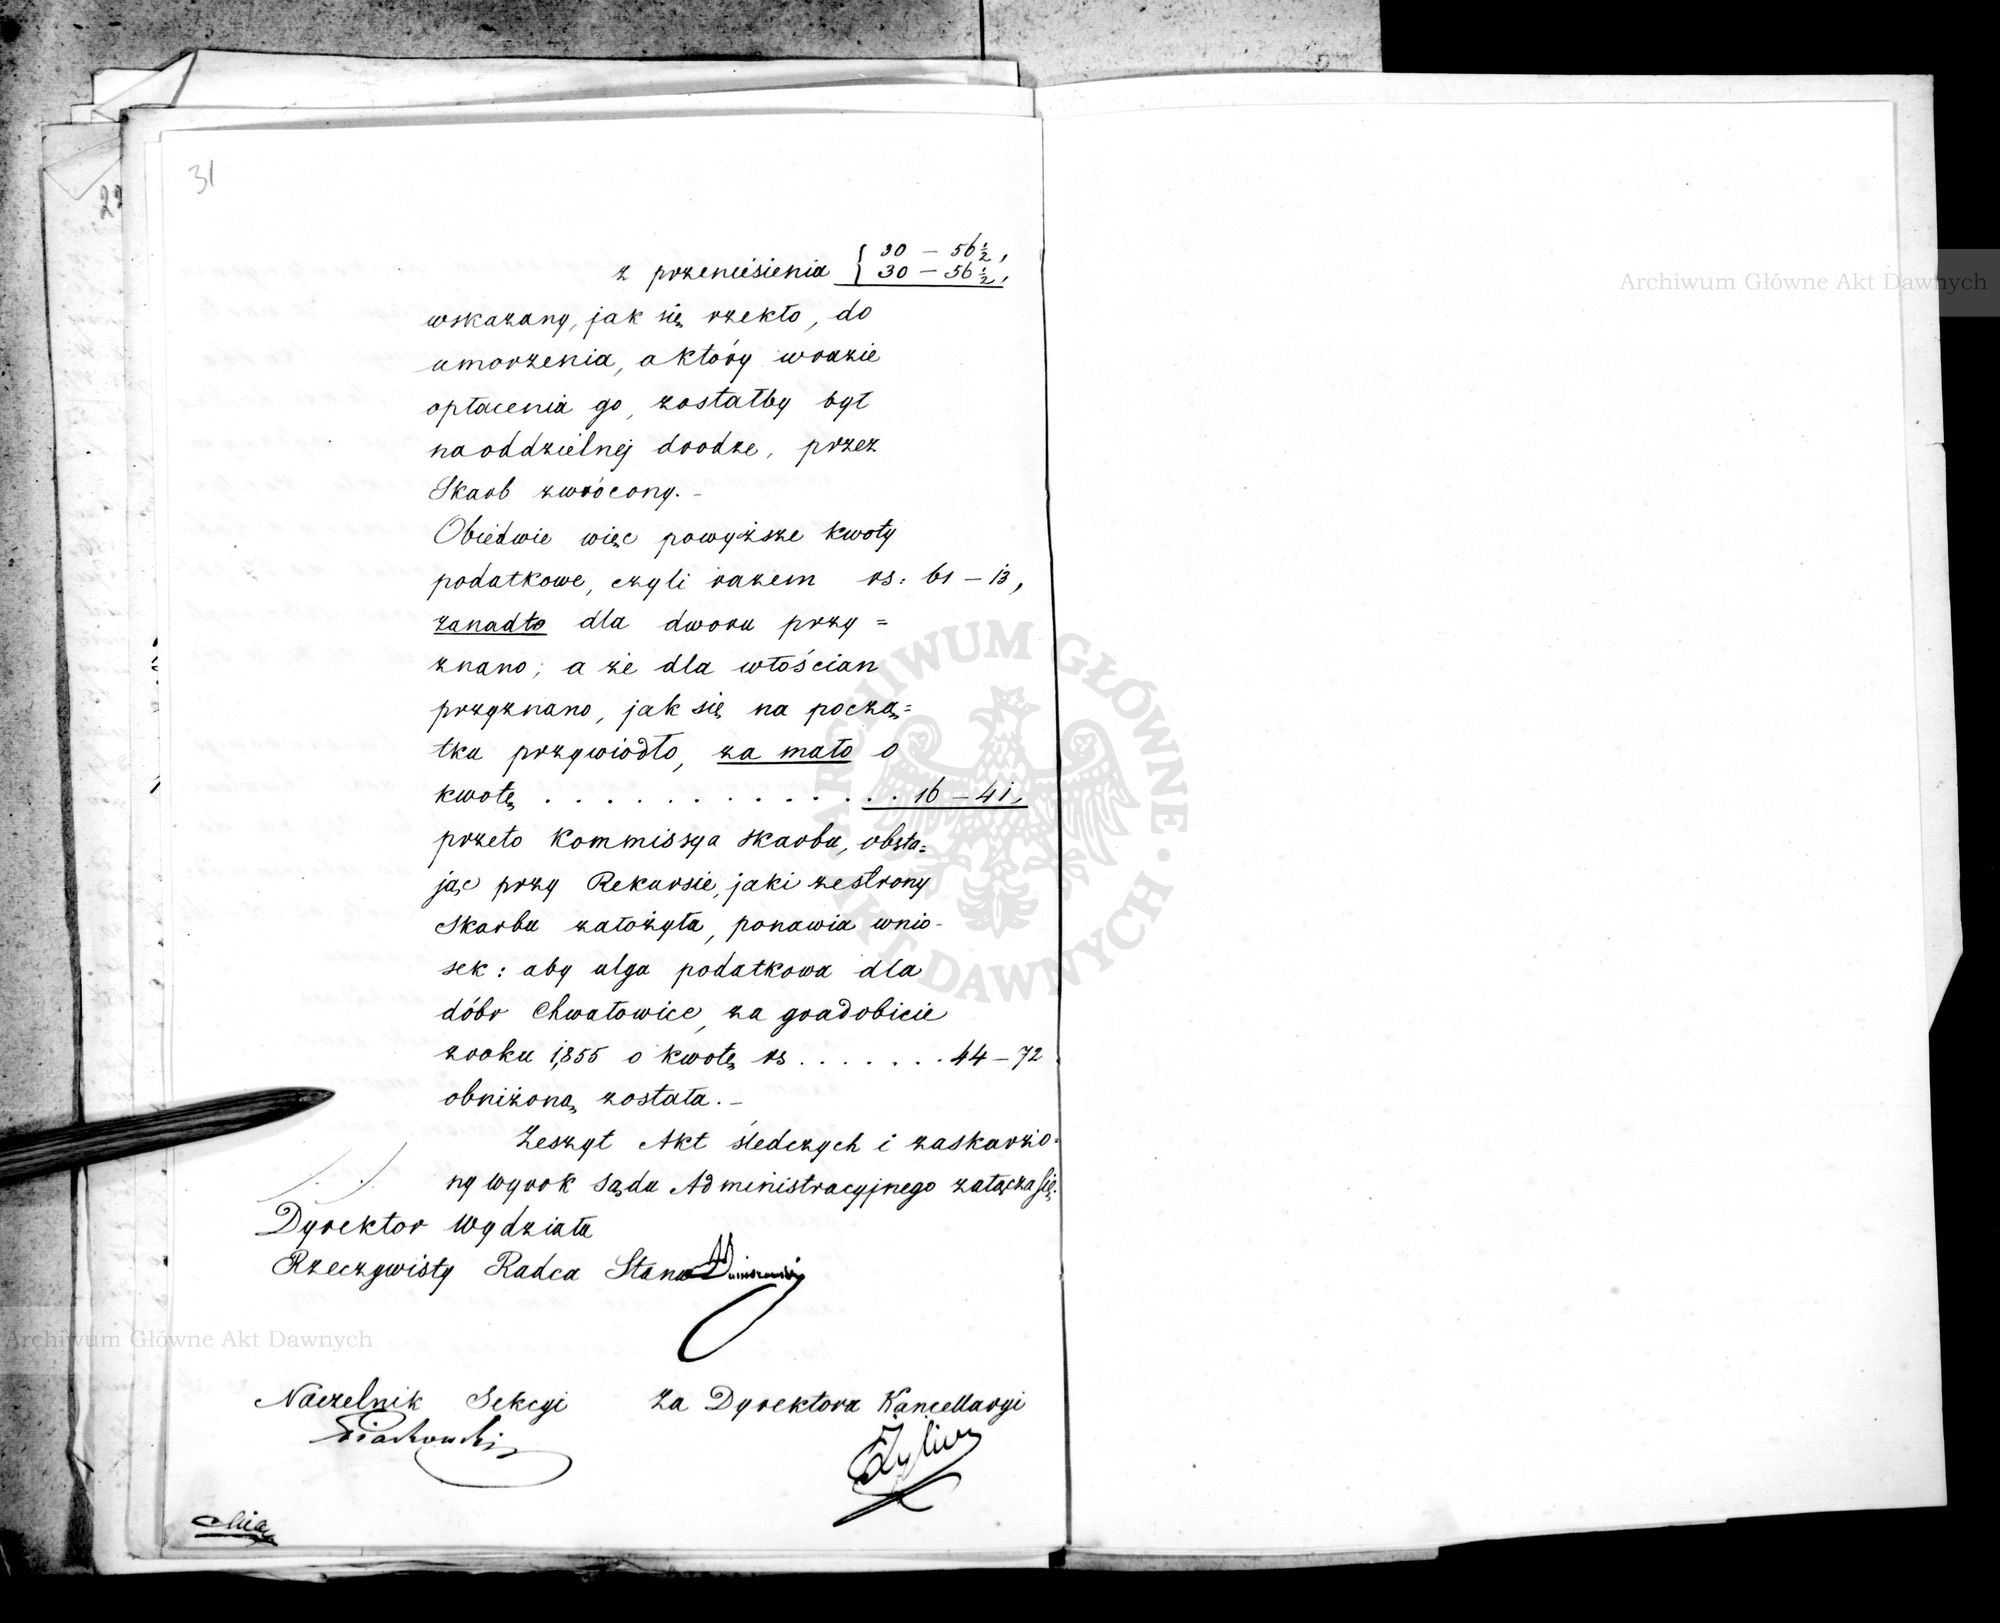 31
22
z przeniesienia { 30 – 56½,
30 – 56½,
wskazany, jak się rzekło, do
umorzenia, a który wrazie
opłacenia go, zostałby był
na oddzielnej drodze, przez
Skarb zwrócony. –
Obiedwie więc powyższe kwoty
podatkowe, czyli razem rs: 61 – 13,
zanadto dla dworu przy=
znano; a że dla włościan
przyznano, jak się na począ=
tku przywiodło, za mało o
kwotę . . . . . . . . . . . . . 16 – 41,
przeto Kommissya Skarbu, obsta=
jąc przy Rekursie, jaki ze strony
Skarbu założyła, ponawia wnio-
sek: aby ulga podatkowa dla
dóbr Chwałowice, za gradobicie
z roku 1855 o kwotę rs . . . . . . . 44 – 72
obniżoną została. –
Zeszyt Akt śledczych i zaskarżo=
ny wyrok Sądu Administracyjnego załącza się.
Dyrektor Wydziału
Rzeczywisty Radca Stanu
Naczelnik Sekcyi za Dyrektora Kancellaryi
Piachowski
Archiwum Główne Akt Dawnych
Archiwum Główne Akt Dawnych
ARCHIWUM GŁÓWNE AKT DAWNYCH